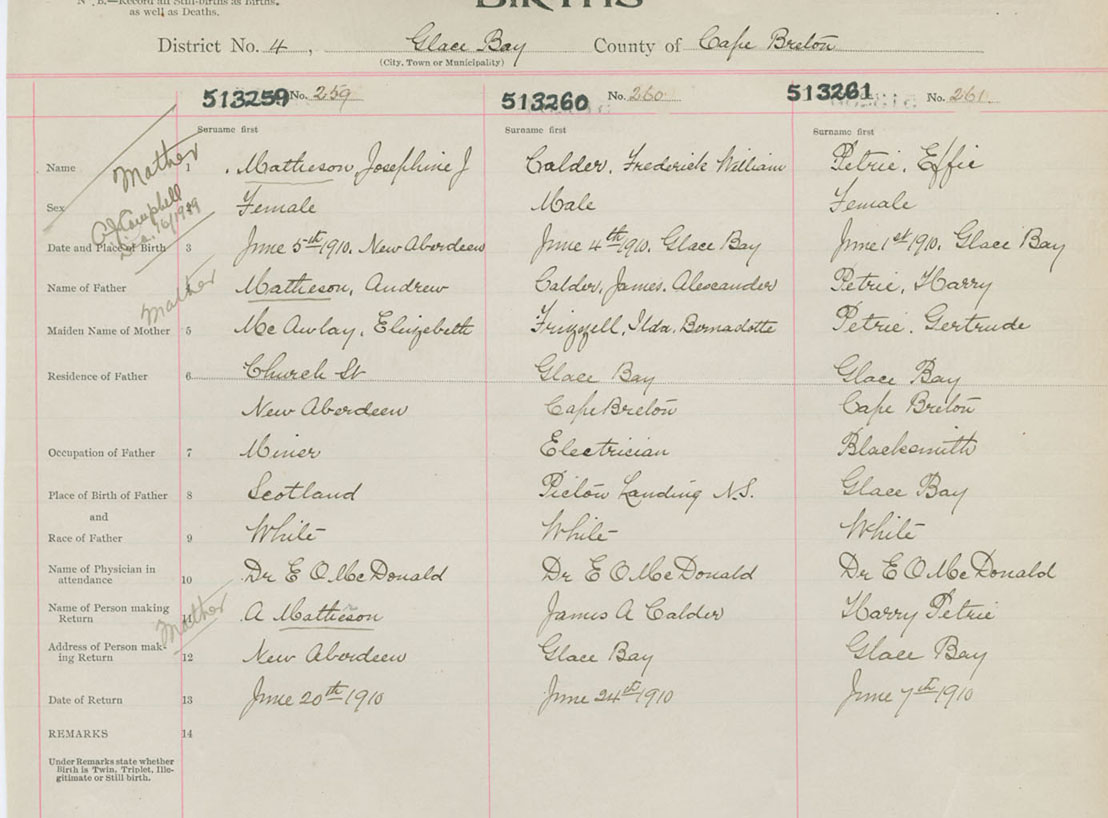 N. B.—Record all Still-births as Births,
as well as Deaths.
BIRTHS
District No. 4, Glace Bay County of Cape Breton
(City, Town or Municipality)
513259 No. 259 513260 No. 260 513261 No. 261
Surname first Surname first Surname first
Name 1 Mathieson, Josephine J Calder, Frederick William Petrie, Effie
Mather
Sex Female Male Female
A J Campbell
Date and Place of Birth 3 June 5th 1910, New Aberdeen June 4th 1910, Glace Bay June 1st 1910, Glace Bay
Name of Father Mathieson, Andrew Calder, James, Alexander Petrie, Harry
Mather
Maiden Name of Mother 5 McAwlay, Elizebeth Frizzell, Ilda, Bernadotte Petrie, Gertrude
Residence of Father 6 Church St Glace Bay Glace Bay
New Aberdeen Cape Breton Cape Breton
Occupation of Father 7 Miner Electrician Blacksmith
Place of Birth of Father 8 Scotland Pictou Landing N.S. Glace Bay
and
Race of Father 9 White White White
Name of Physician in
attendance 10 Dr E O McDonald Dr E O McDonald Dr E O McDonald
Name of Person making
Return 11 A Mathieson James A Calder Harry Petrie
Mather
Address of Person mak-
ing Return 12 New Aberdeen Glace Bay Glace Bay
Date of Return 13 June 20th 1910 June 24th 1910 June 7th 1910
REMARKS 14
Under Remarks state whether
Birth is Twin, Triplet, Ille-
gitimate or Still birth.